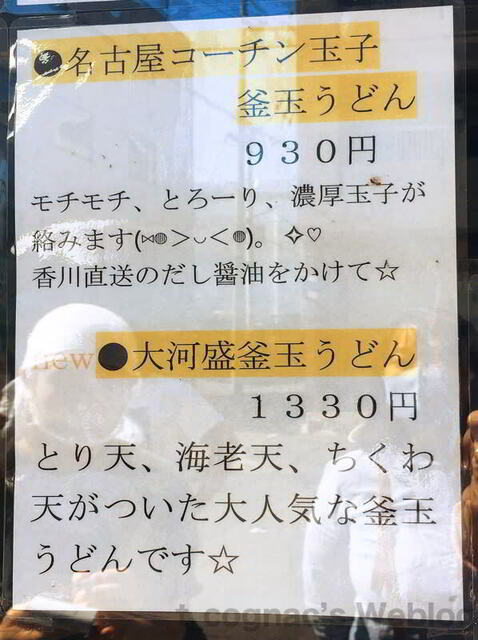 ●名古屋コーチン玉子
釜玉うどん
930円
モチモチ、とろーり、濃厚玉子が
絡みます(⋈◍>◡<◍)。✧♡
香川直送のだし醤油をかけて☆
new●大河盛釜玉うどん
1330円
とり天、海老天、ちくわ
天がついた大人気な釜玉
うどんです☆
t.cognac's Weblog